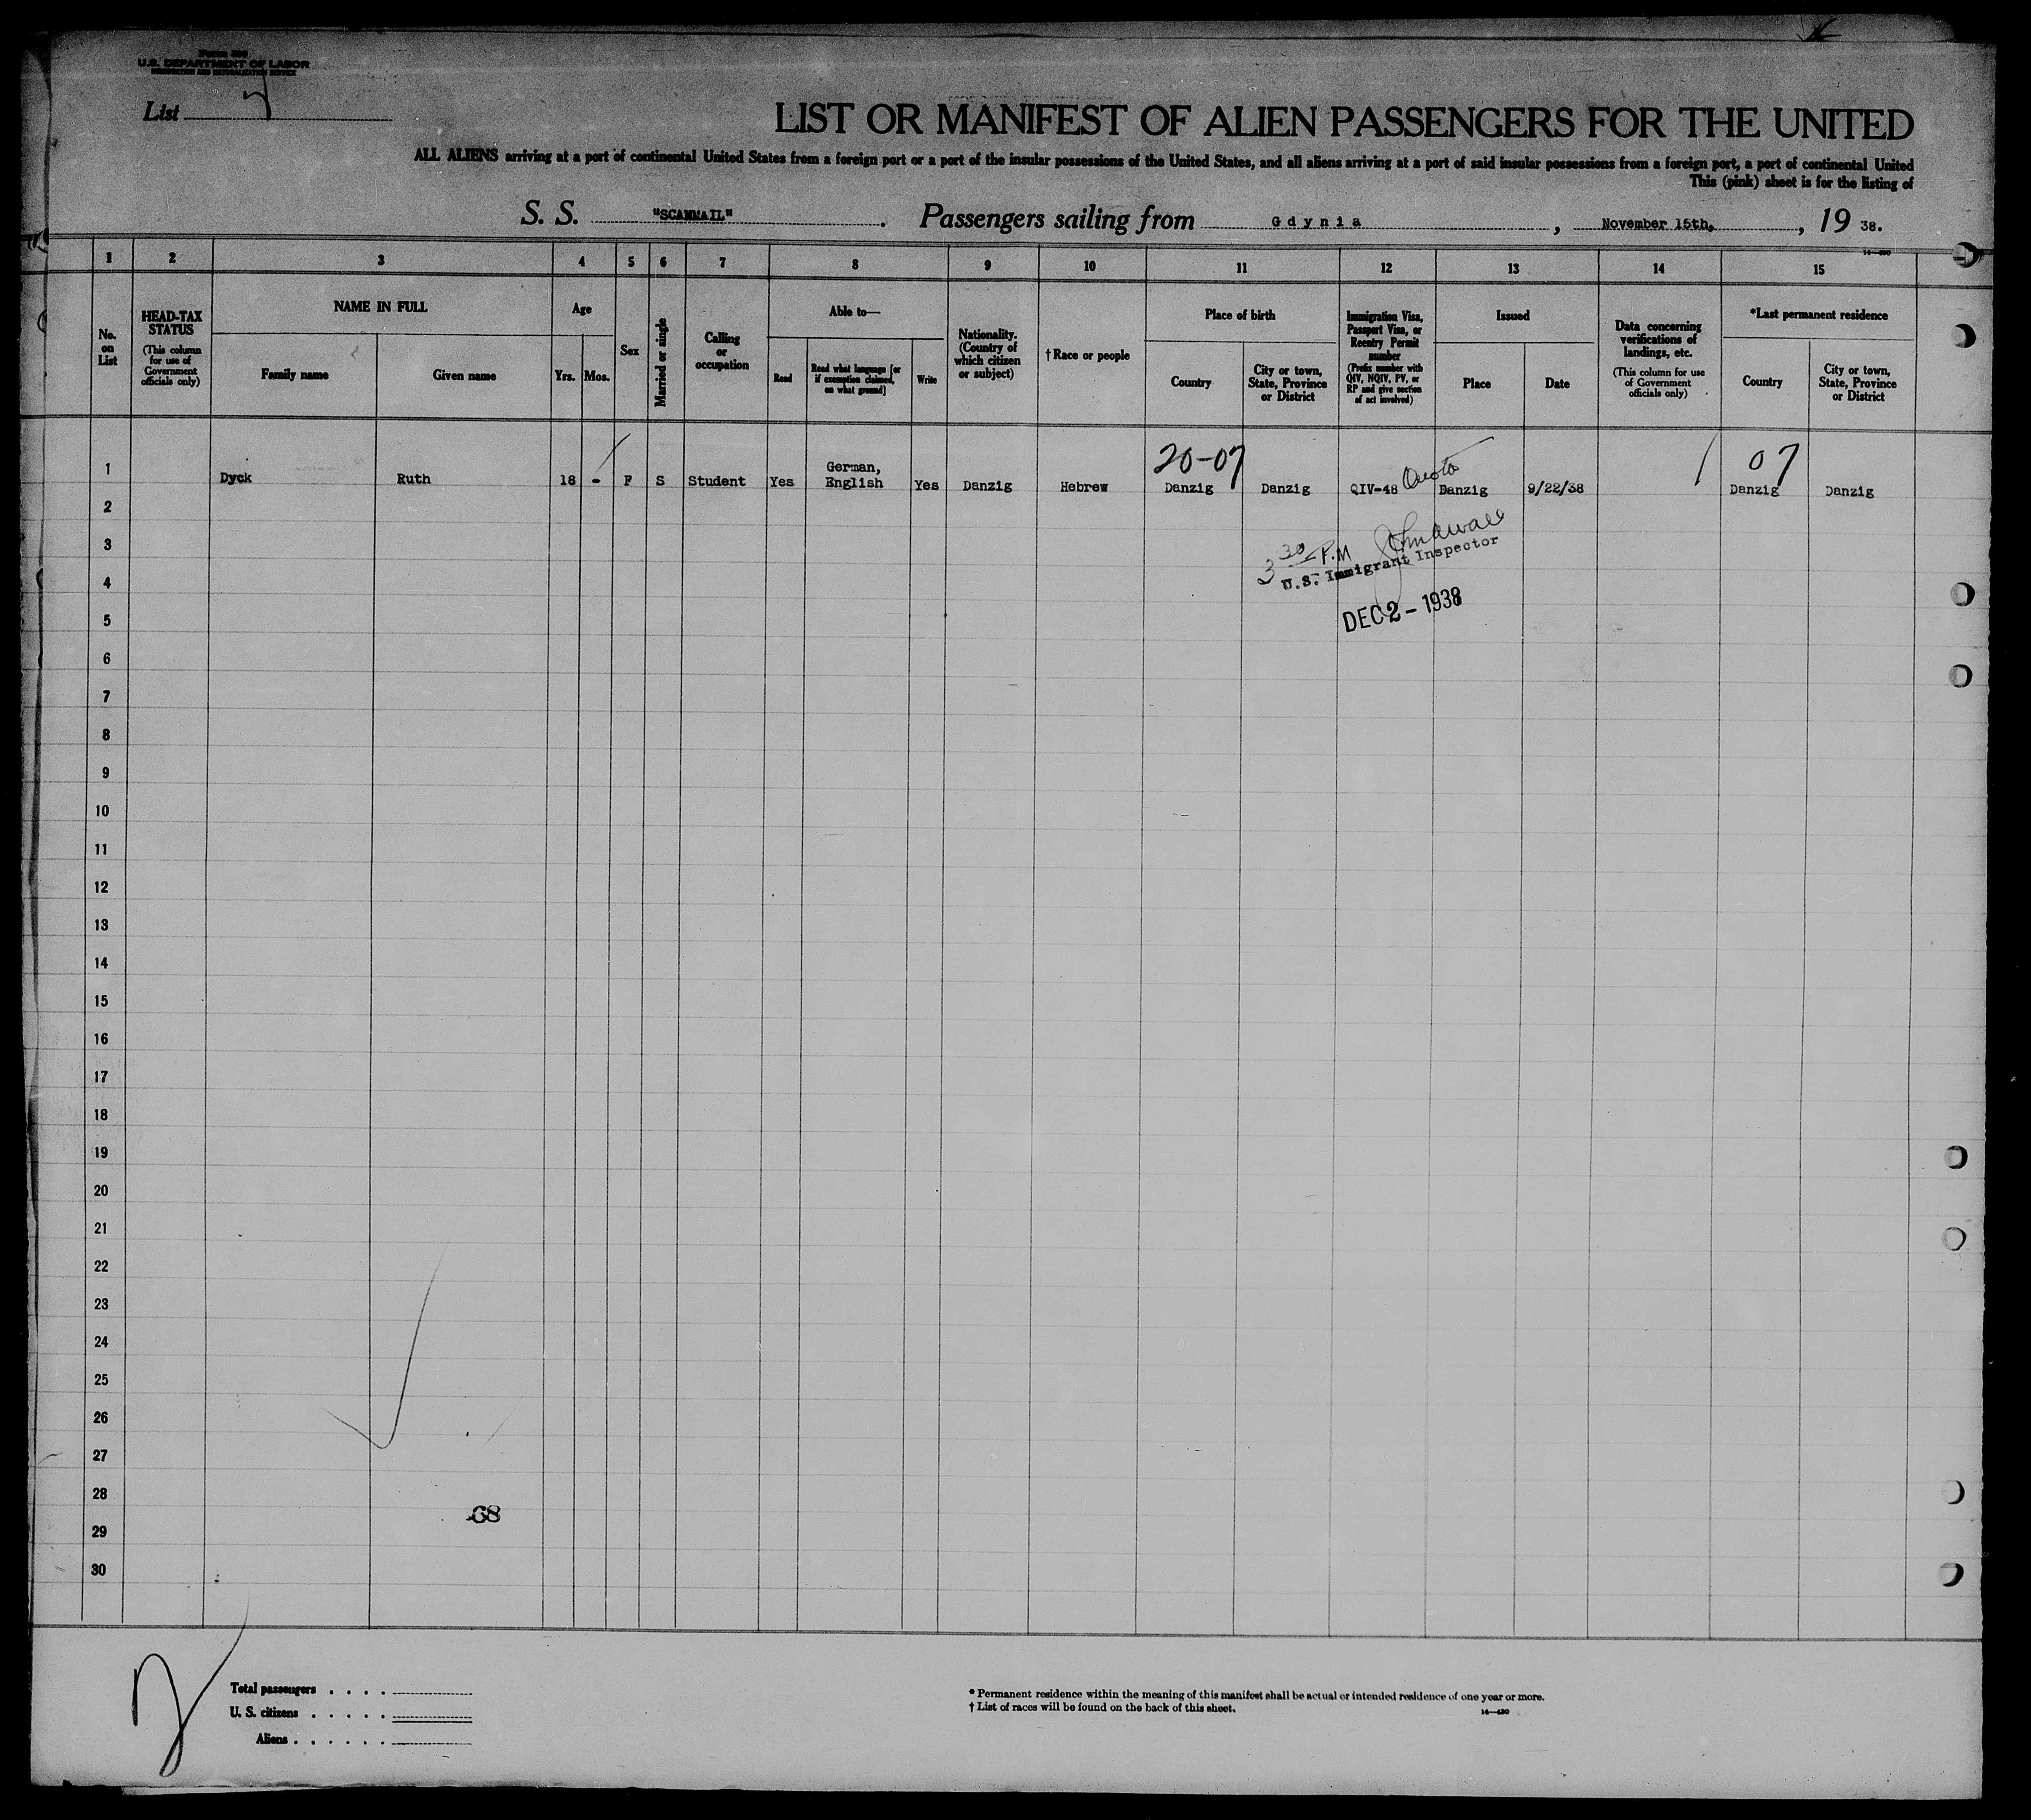 Form 500
U.S. DEPARTMENT OF LABOR
IMMIGRATION AND NATURALIZATION SERVICE
List
LIST OR MANIFEST OF ALIEN PASSENGERS FOR THE UNITED
ALL ALIENS arriving at a port of continental United States from a foreign port or a port of the insular possessions of the United States, and all aliens arriving at a port of said insular possessions from a foreign port, a port of continental United
This (pink) sheet is for the listing of
S. S. "SCANMAIL". Passengers sailing from Gdynia, November 15th, , 19 38.
1 2 3 4 5 6 7 8 9 10 11 12 13 14 15
No. on List
HEAD-TAX STATUS
(This column for use of Government officials only)
NAME IN FULL
Family name
Given name
Age
Yrs. Mos.
Sex
Married or single
Calling or occupation
Able to—
Read
Read what language [or if exemption claimed, on what ground]
Write
Nationality. (Country of which citizen or subject)
† Race or people
Place of birth
Country
City or town, State, Province or District
Immigration Visa, Passport Visa, or Reentry Permit number
(Prefix number with QIV, NQIV, PV, or RP and give section of act involved)
Issued
Place
Date
Data concerning verifications of landings, etc.
(This column for use of Government officials only)
*Last permanent residence
Country
City or town, State, Province or District
20-07 Quota 07
1 Dyck Ruth 18 - F S Student Yes German, English Yes Danzig Hebrew Danzig Danzig QIV-48 Danzig 9/22/38 Danzig Danzig
2
3
3 30 P.M
4
U.S. Immigrant Inspector
5
DEC 2 - 1938
6
7
8
9
10
11
12
13
14
15
16
17
18
19
20
21
22
23
24
25
26
27
28
68
29
30
Total passengers . . . .
U. S. citizens . . . . .
Aliens . . . . . .
* Permanent residence within the meaning of this manifest shall be actual or intended residence of one year or more.
† List of races will be found on the back of this sheet.
14—430